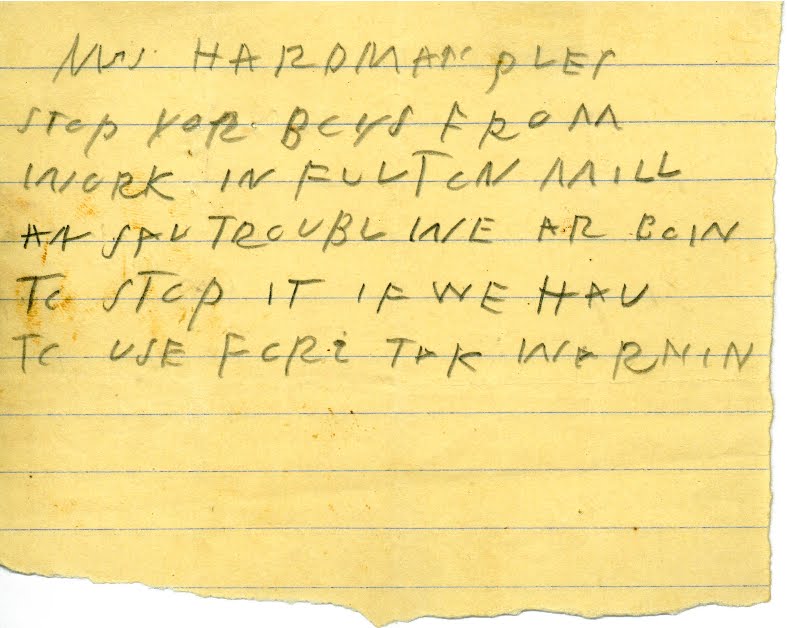 Mrs HARDMAN PLES
STOP YOR BOYS FROM
WORK IN FULTON MILL
AN SAV TROUBL WE AR GOIN
TO STOP IT IF WE HAV
TO USE FORC TAK WARNIN